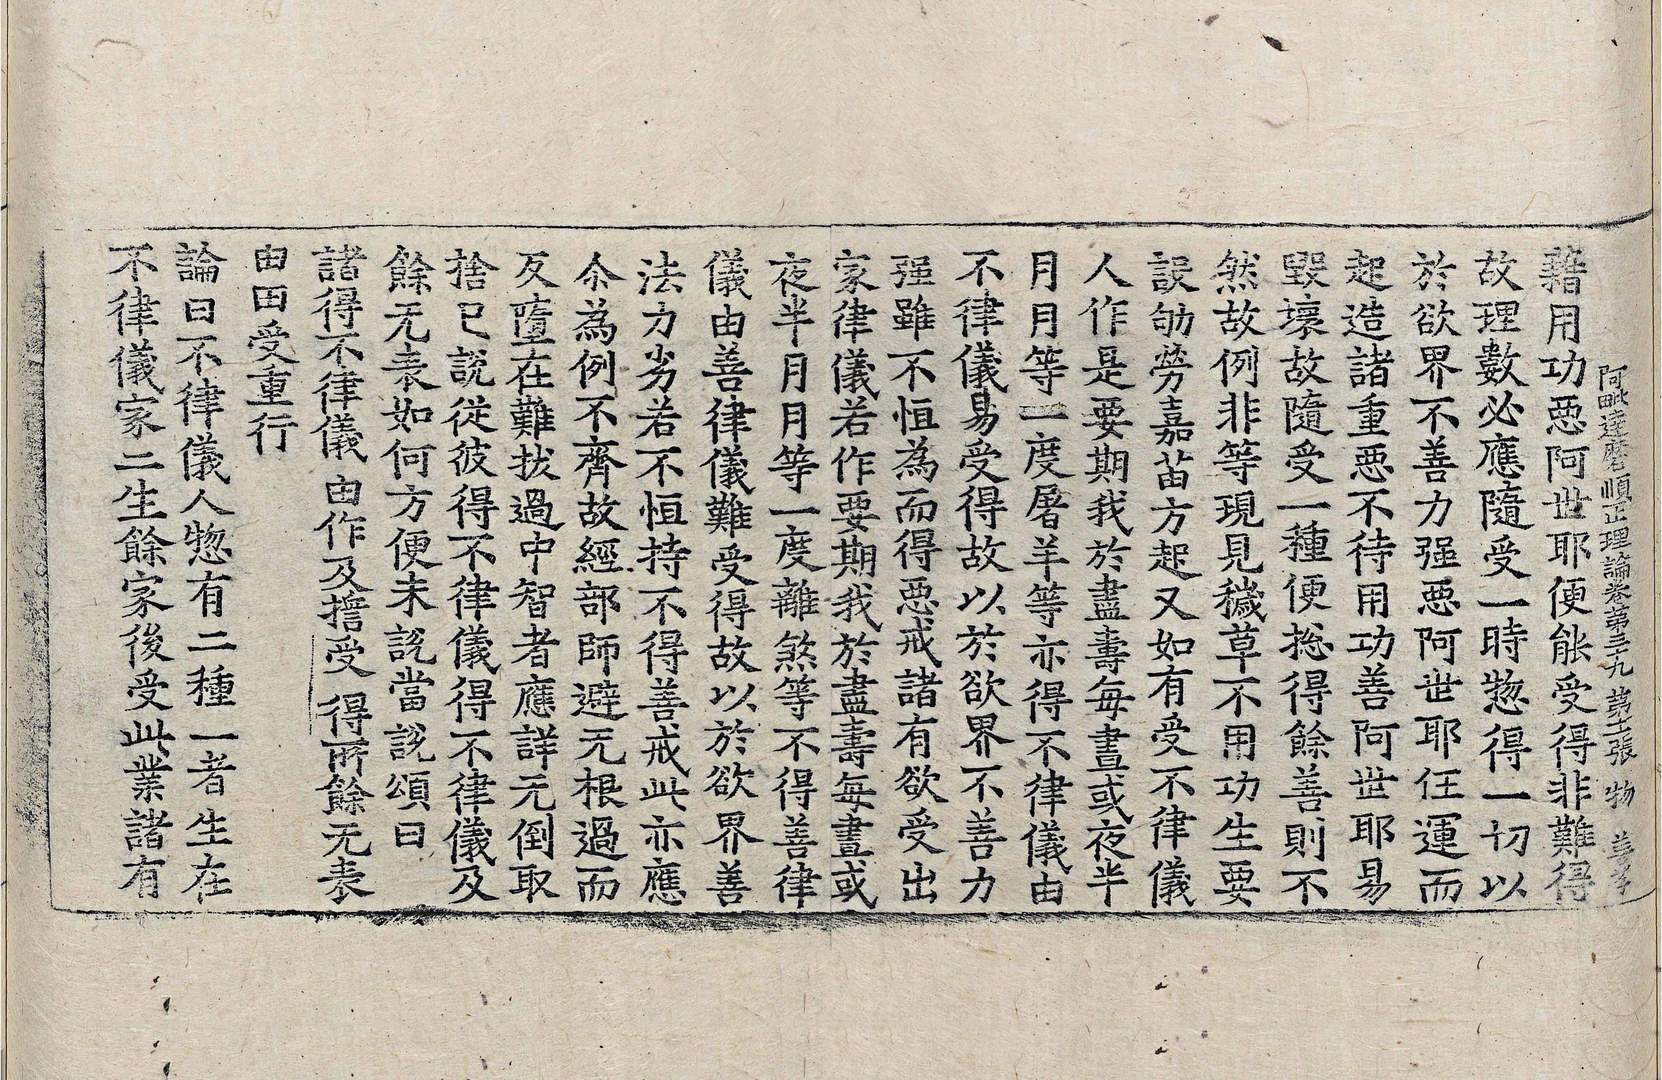 阿毗達磨順正理論卷第三十九 第十張 物
藉用功惡阿世耶便能受得非難得
故理數必應隨受一時惣得一切以
於欲界不善力强惡阿世耶任運而
起造諸重惡不待用功善阿世耶易
毀壞故隨受一種便捴得餘善則不
然故例非等現見穢草不用功生要
設劬勞嘉苗方起又如有受不律儀
人作是要期我於盡壽每晝或夜半
月月等一度屠羊等亦得不律儀由
不律儀易受得故以於欲界不善力
强雖不恒為而得惡戒諸有欲受出
家律儀若作要期我於盡壽每晝或
夜半月月等一度離煞等不得善律
儀由善律儀難受得故以於欲界善
法力劣若不恒持不得善戒此亦應
尒為例不齊故經部師避无根過而
反墮在難拔過中智者應詳无倒取
捨已說從彼得不律儀得不律儀及
餘无表如何方便未說當說頌曰
諸得不律儀 由作及擔受 得所餘无表
由田受重行
論曰不律儀人惣有二種一者生在
不律儀家二生餘家後受此業諸有